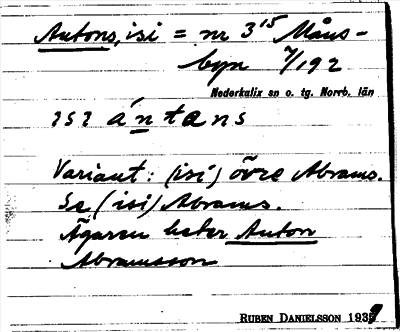 Antons, isi = nr 3 15 Måns-
byn 7/192
Nederkalix sn o. tg. Norrb. län
ısı ántans
Variant: (isi) övre Abrams.
Se (isi) Abrams.
Ägaren heter Anton
Abramsson
RUBEN DANIELSSON 1939